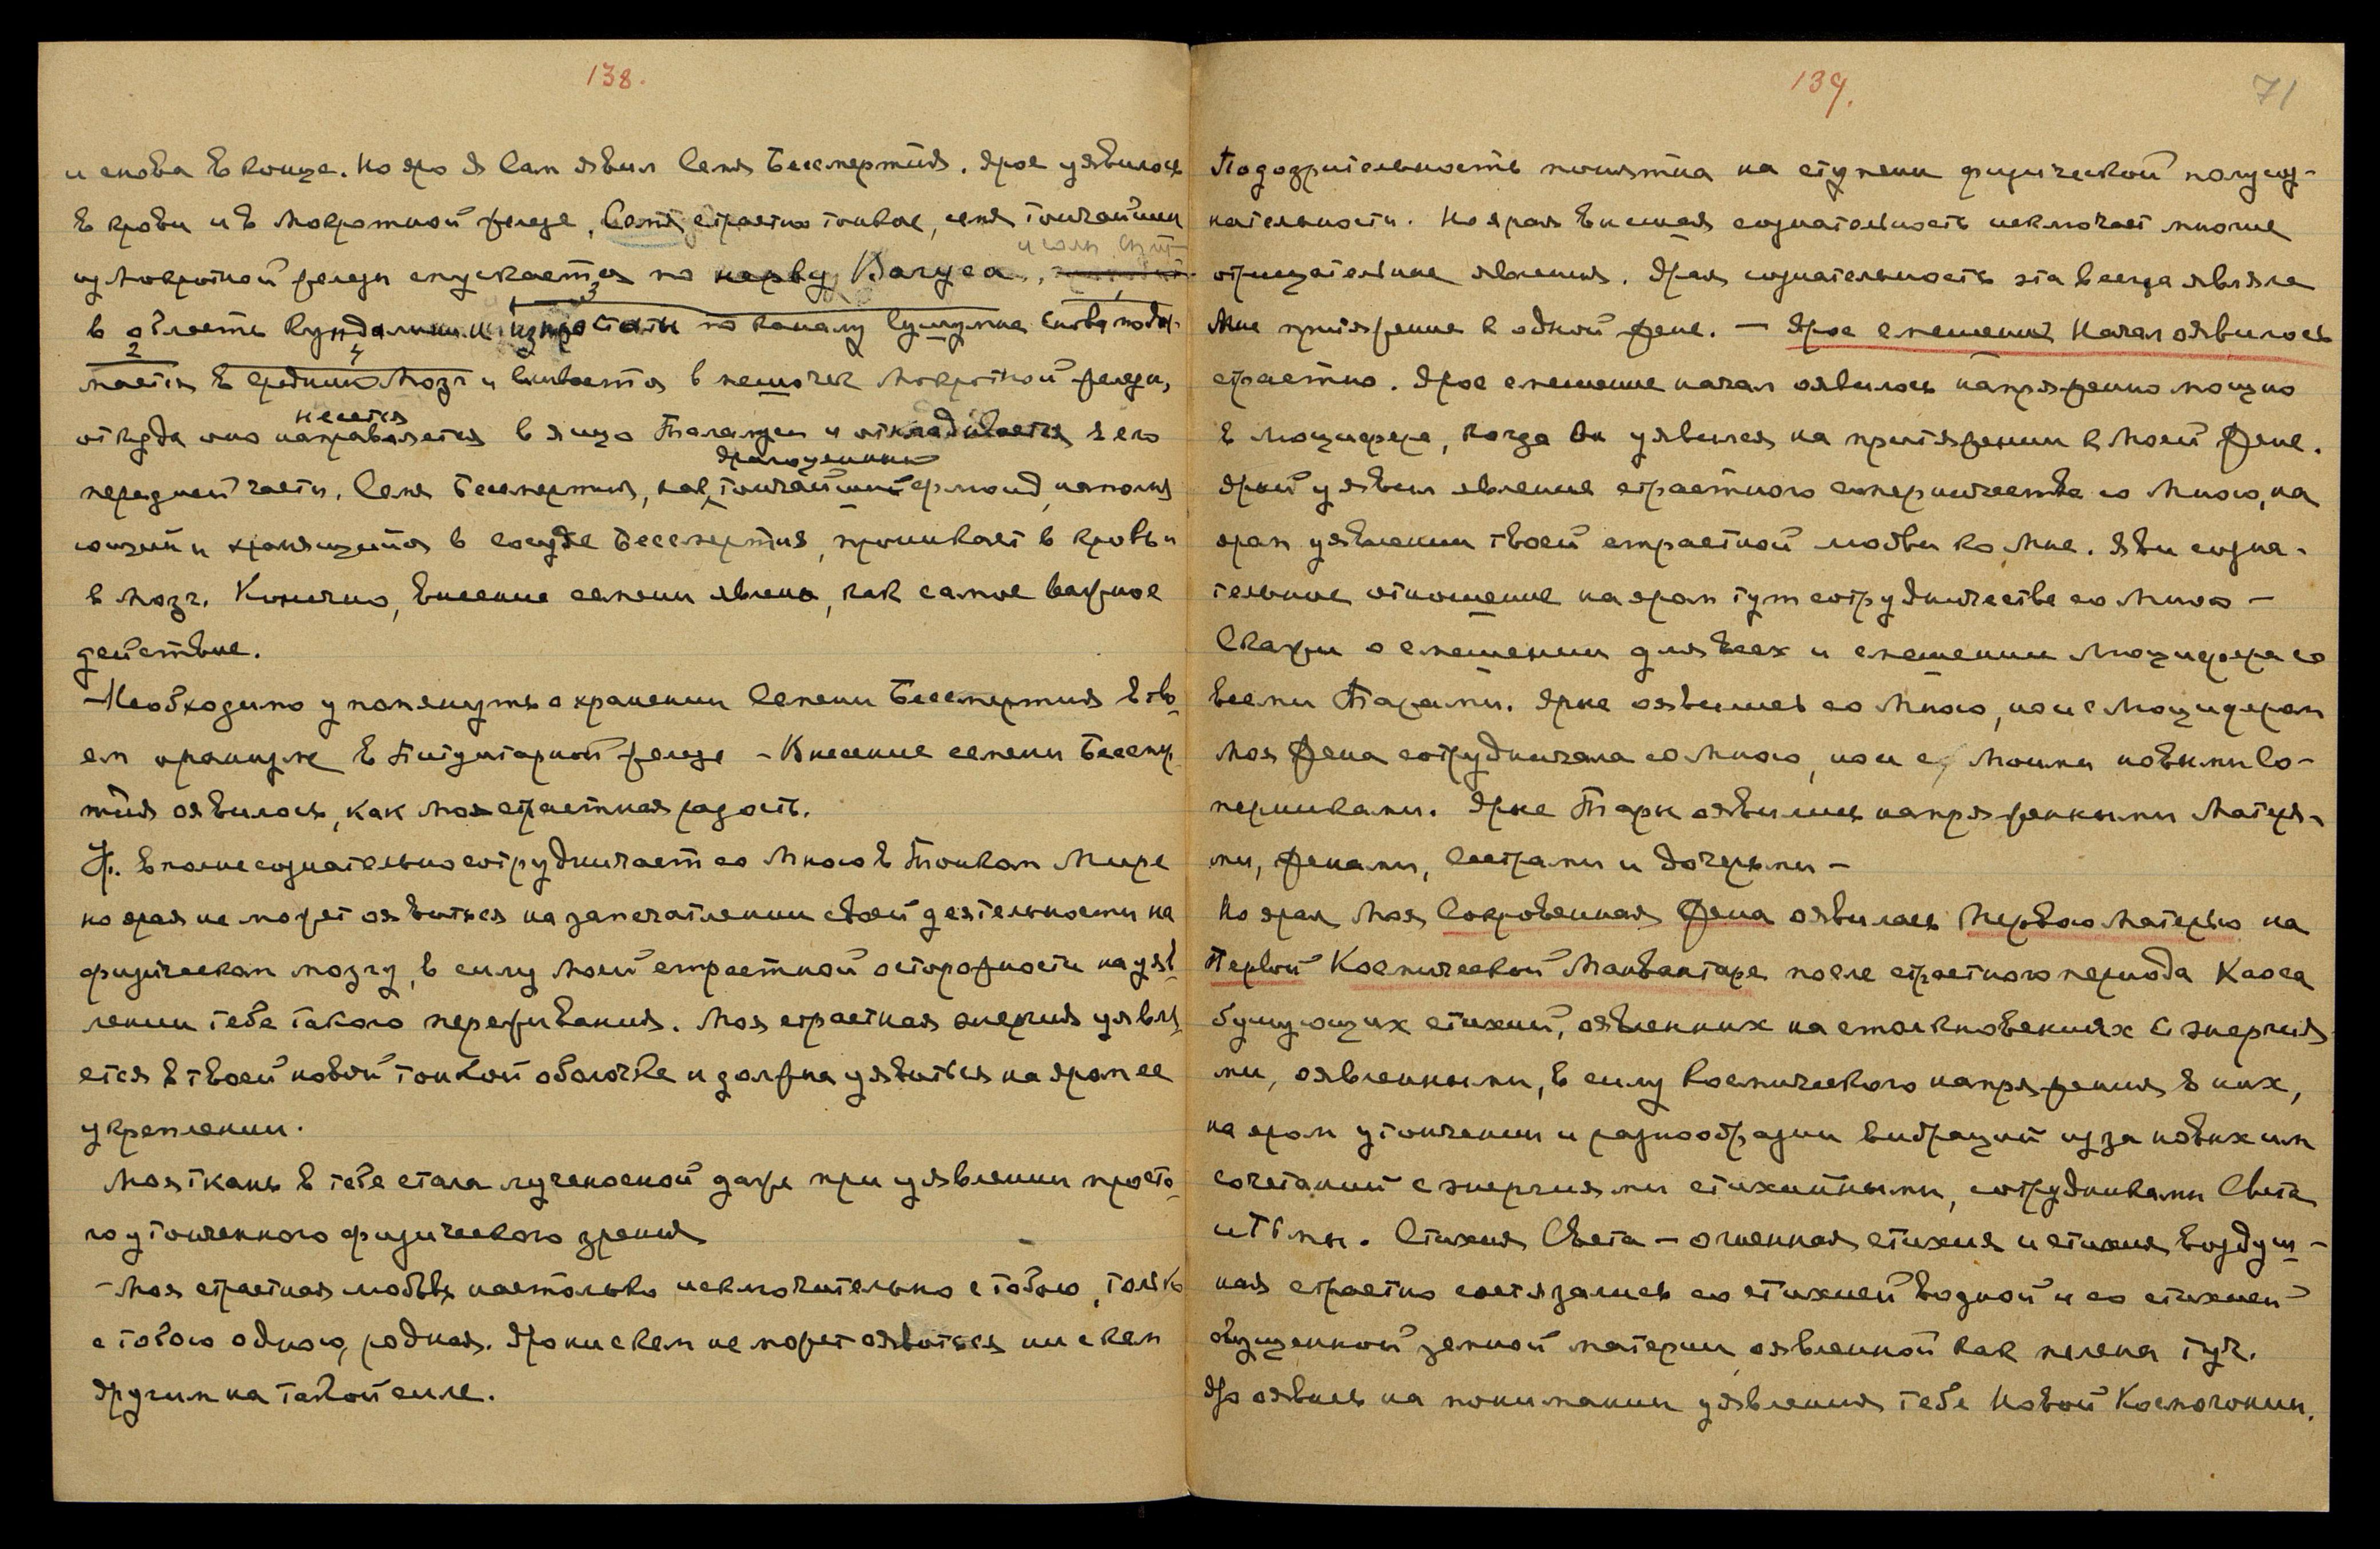 138.
и снова в конце. Но яро Я Сам явил Семя Бессмертия. Ярое уявилось
в крови и в мокротной железе, Семя страстно тонкое, семя тончайшим
из мокротной железы спускается по нерву Вагуса,
в область Кундалини и простаты по каналу Сушумна снова поды-
2 3 4
мается в средний мозг и вливается в мешочек мокротной железы,
несется
откуда оно направляется в яйцо Таламуси и откладывается в его
драгоценный
передней части. Семя Бессмертия, как тончайший флюид, наполня
ющий и хранящийся в сосуде Бессмертия, проникает в кровь и
в мозг. Конечно, внесение семени явлено, как самое важное
действие.
– Необходимо упомянуть о хранении Семени Бессмертия в тво-
ем организме в питуитарной железе – Внесение семени Бессмер
тия оявилось, как Моя страстная радость.
Ур. вполне сознательно сотрудничает со Мною в Тонком Мире
но ярая не может оявиться на запечатлении своей деятельности на
физическом мозгу, в силу Моей страстной осторожности на уяв-
лении тебе такого переживания. Моя страстная энергия уявля
ется в твоей новой тонкой оболочке и должна уявиться на яром ее
укреплении.
Моя ткань в тебе стала лученосной даже при уявлении просто-
го утонченного физического зрения
– Моя страстная любовь настолько исключительно с тобою, только
с тобою одною, родная. Яро ни с кем не может оявиться ни с кем
другим на такой силе.
139.
71
Подозрительность понятна на ступени физической полусоз-
нательности. Но ярая высшая сознательность исключает многие
отрицательные явления. Ярая сознательность эта всегда являла
Мне притяжение к одной Жене. – Ярое смешение Начал оявилось
страстно. Ярое смешение начал оявилось напряженно мощно
в Люцифере, когда Он уявился на притяжении к Моей Жене.
Ярый уявил явление страстного соперничества со Мною, на
яром уявлении твоей страстной любви ко Мне. Яви созна-
тельное отношение на яром тут сотрудничестве со Мною –
Скажи о смешении для всех и смешении Люцифера со
всеми Тарами. Ярые оявились со Мною, но и с Люцифером
Моя Жена сотрудничала со Мною, но и с Моими новыми Со-
перниками. Ярые Тары оявились напряженными Матеря-
ми, Женами, Сестрами и Дочерьми –
Но ярая Моя Сокровенная Жена оявилась Первою Матерью на
Первой Космической Манвантаре после страстного периода Хаоса
бушующих стихий, оявленных на столкновениях с энергия
ми, оявленными, в силу космического напряжения в них,
на яром утончении и разнообразии вибраций из за новых им
сочетаний с энергиями стихийными, сотрудниками Света
и Тьмы. Стихия Света – огненная стихия и стихия воздуш-
ная страстно состязались со стихией водной и со стихией
сгущенной земной материи оявленной как пелена туч.
Яро оявись на понимании уявления тебе Новой Космогонии.